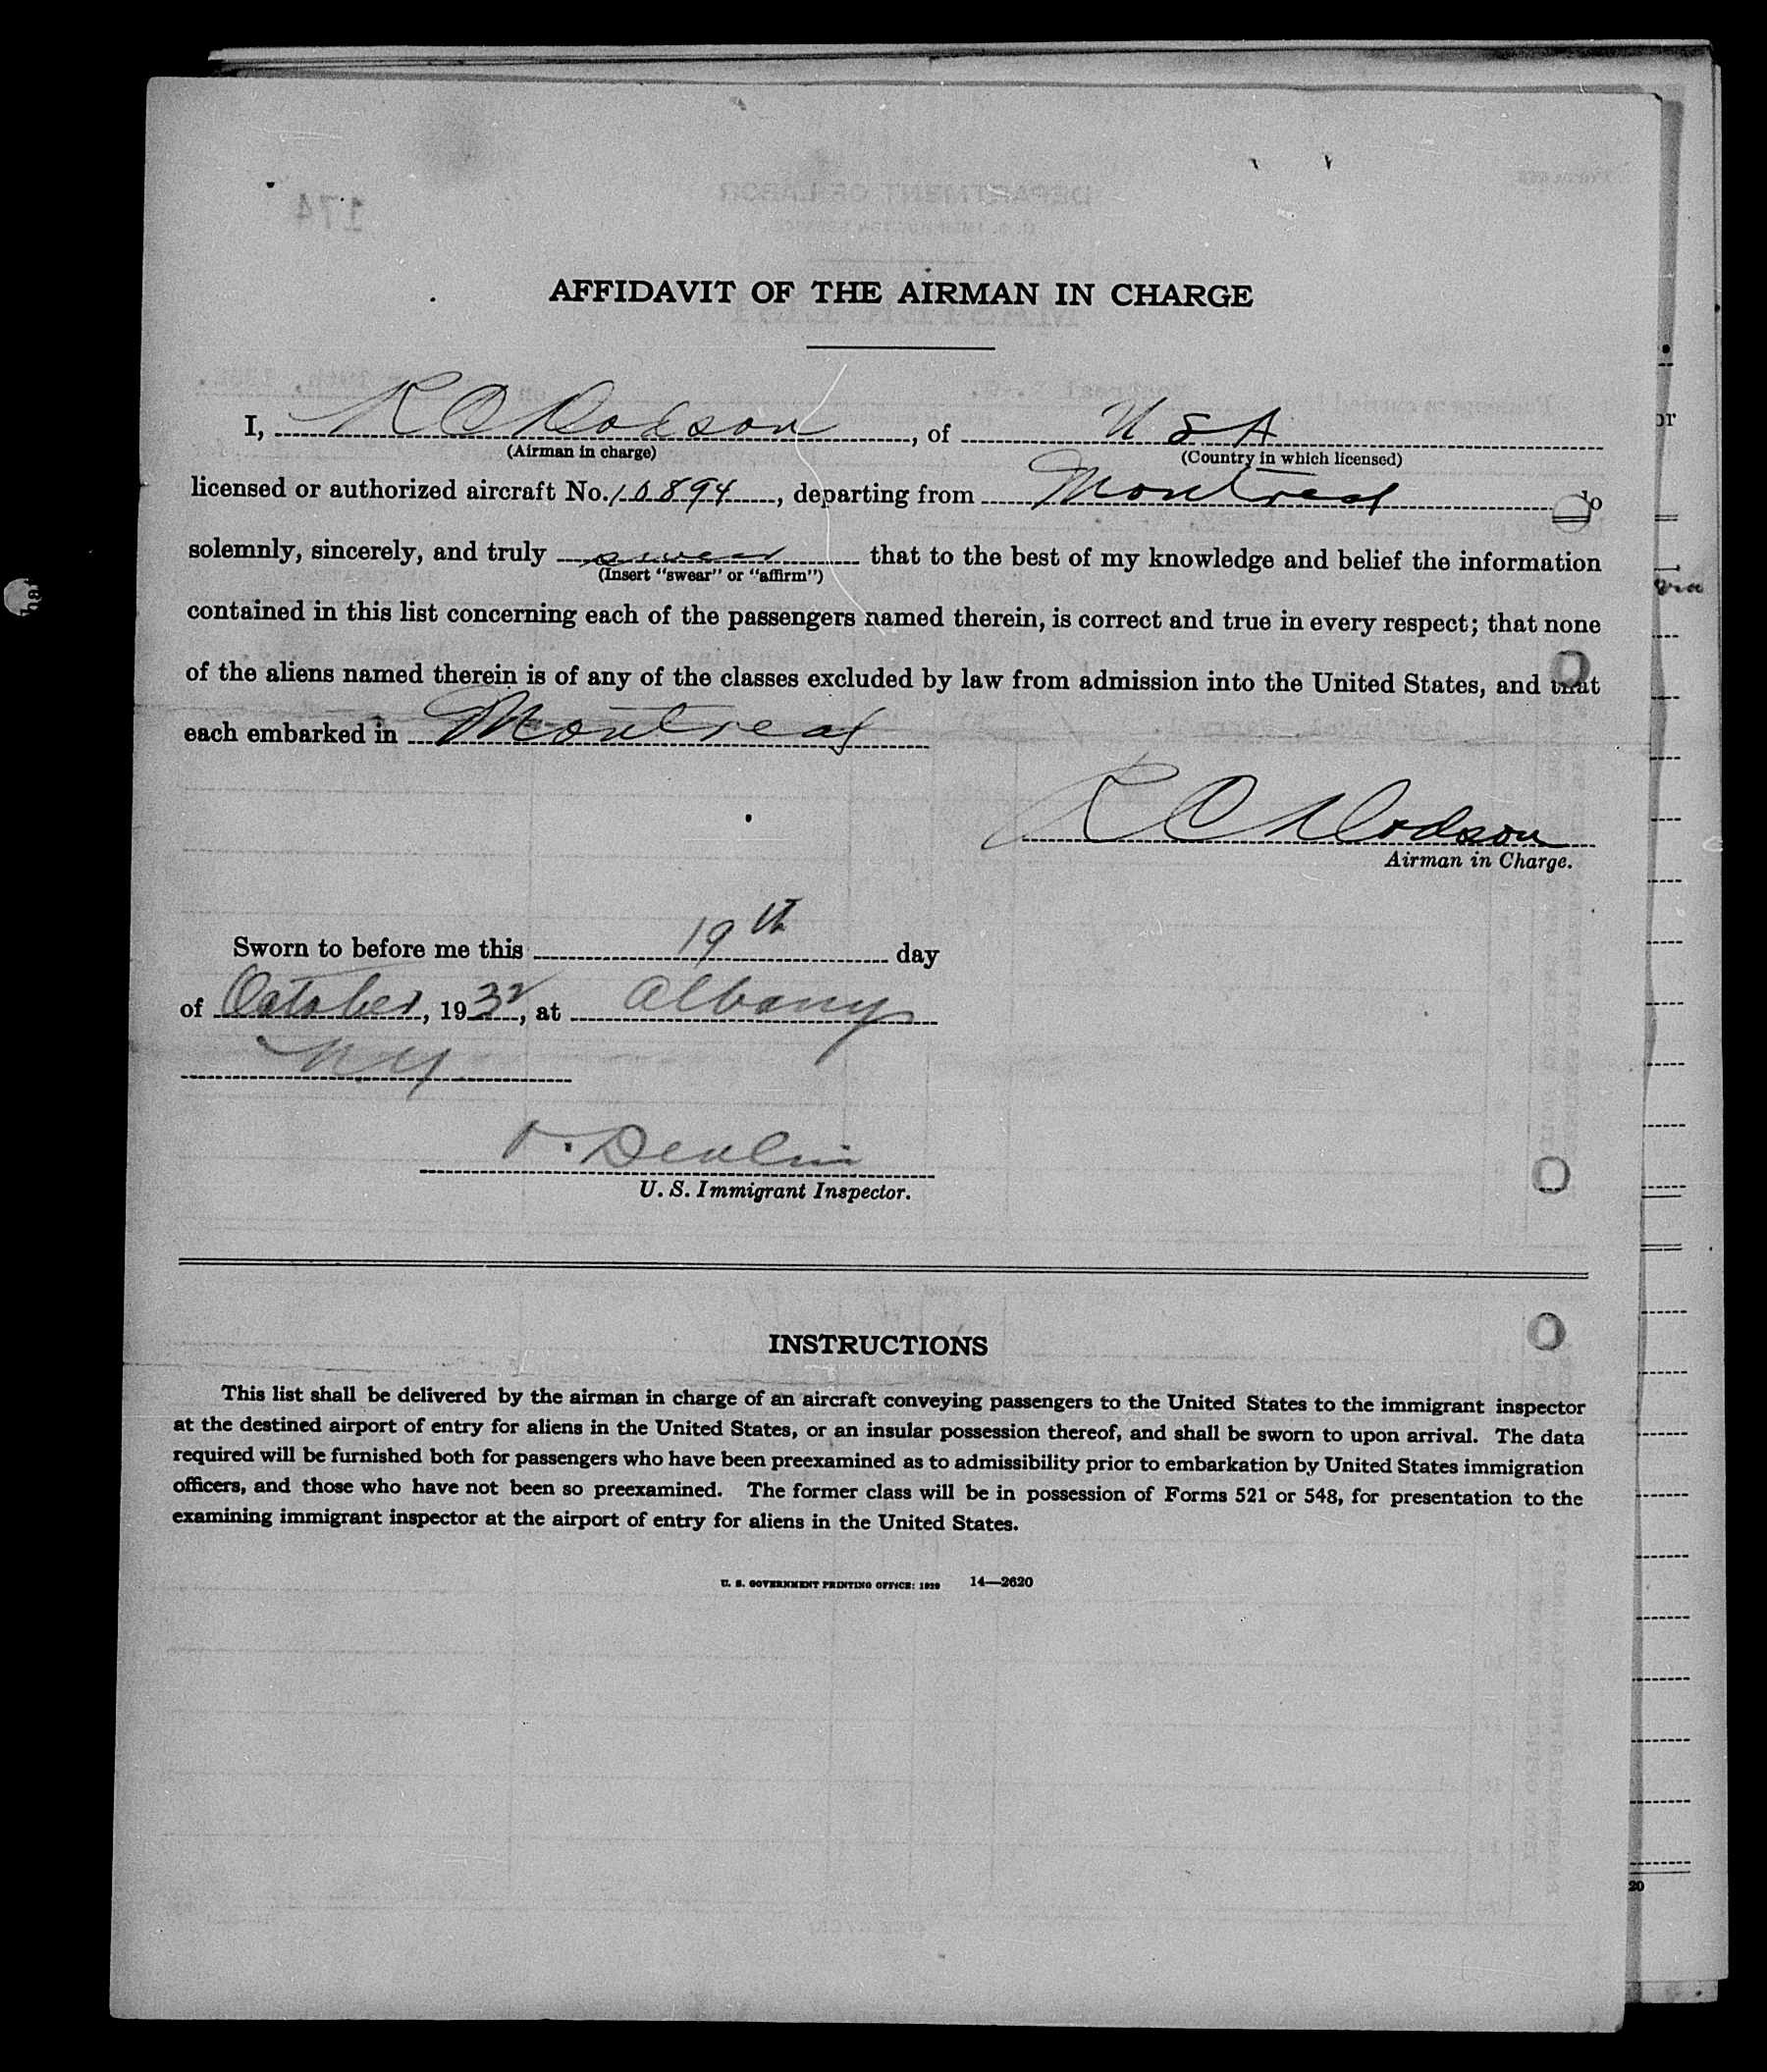 AFFIDAVIT OF THE AIRMAN IN CHARGE
I, R C Dodson, of U S A
(Airman in charge) (Country in which licensed)
licensed or authorized aircraft No. 10894, departing from Montreal do
solemnly, sincerely, and truly swear that to the best of my knowledge and belief the information
(Insert "swear" or "affirm")
contained in this list concerning each of the passengers named therein, is correct and true in every respect; that none
of the aliens named therein is of any of the classes excluded by law from admission into the United States, and that
each embarked in Montreal
R C Dodson
Airman in Charge.
Sworn to before me this 19th day
of October, 1932, at Albany
N Y
Devlin
U. S. Immigrant Inspector.
INSTRUCTIONS
This list shall be delivered by the airman in charge of an aircraft conveying passengers to the United States to the immigrant inspector
at the destined airport of entry for aliens in the United States, or an insular possession thereof, and shall be sworn to upon arrival. The data
required will be furnished both for passengers who have been preexamined as to admissibility prior to embarkation by United States immigration
officers, and those who have not been so preexamined. The former class will be in possession of Forms 521 or 548, for presentation to the
examining immigrant inspector at the airport of entry for aliens in the United States.
U. S. GOVERNMENT PRINTING OFFICE: 1929 14—2620